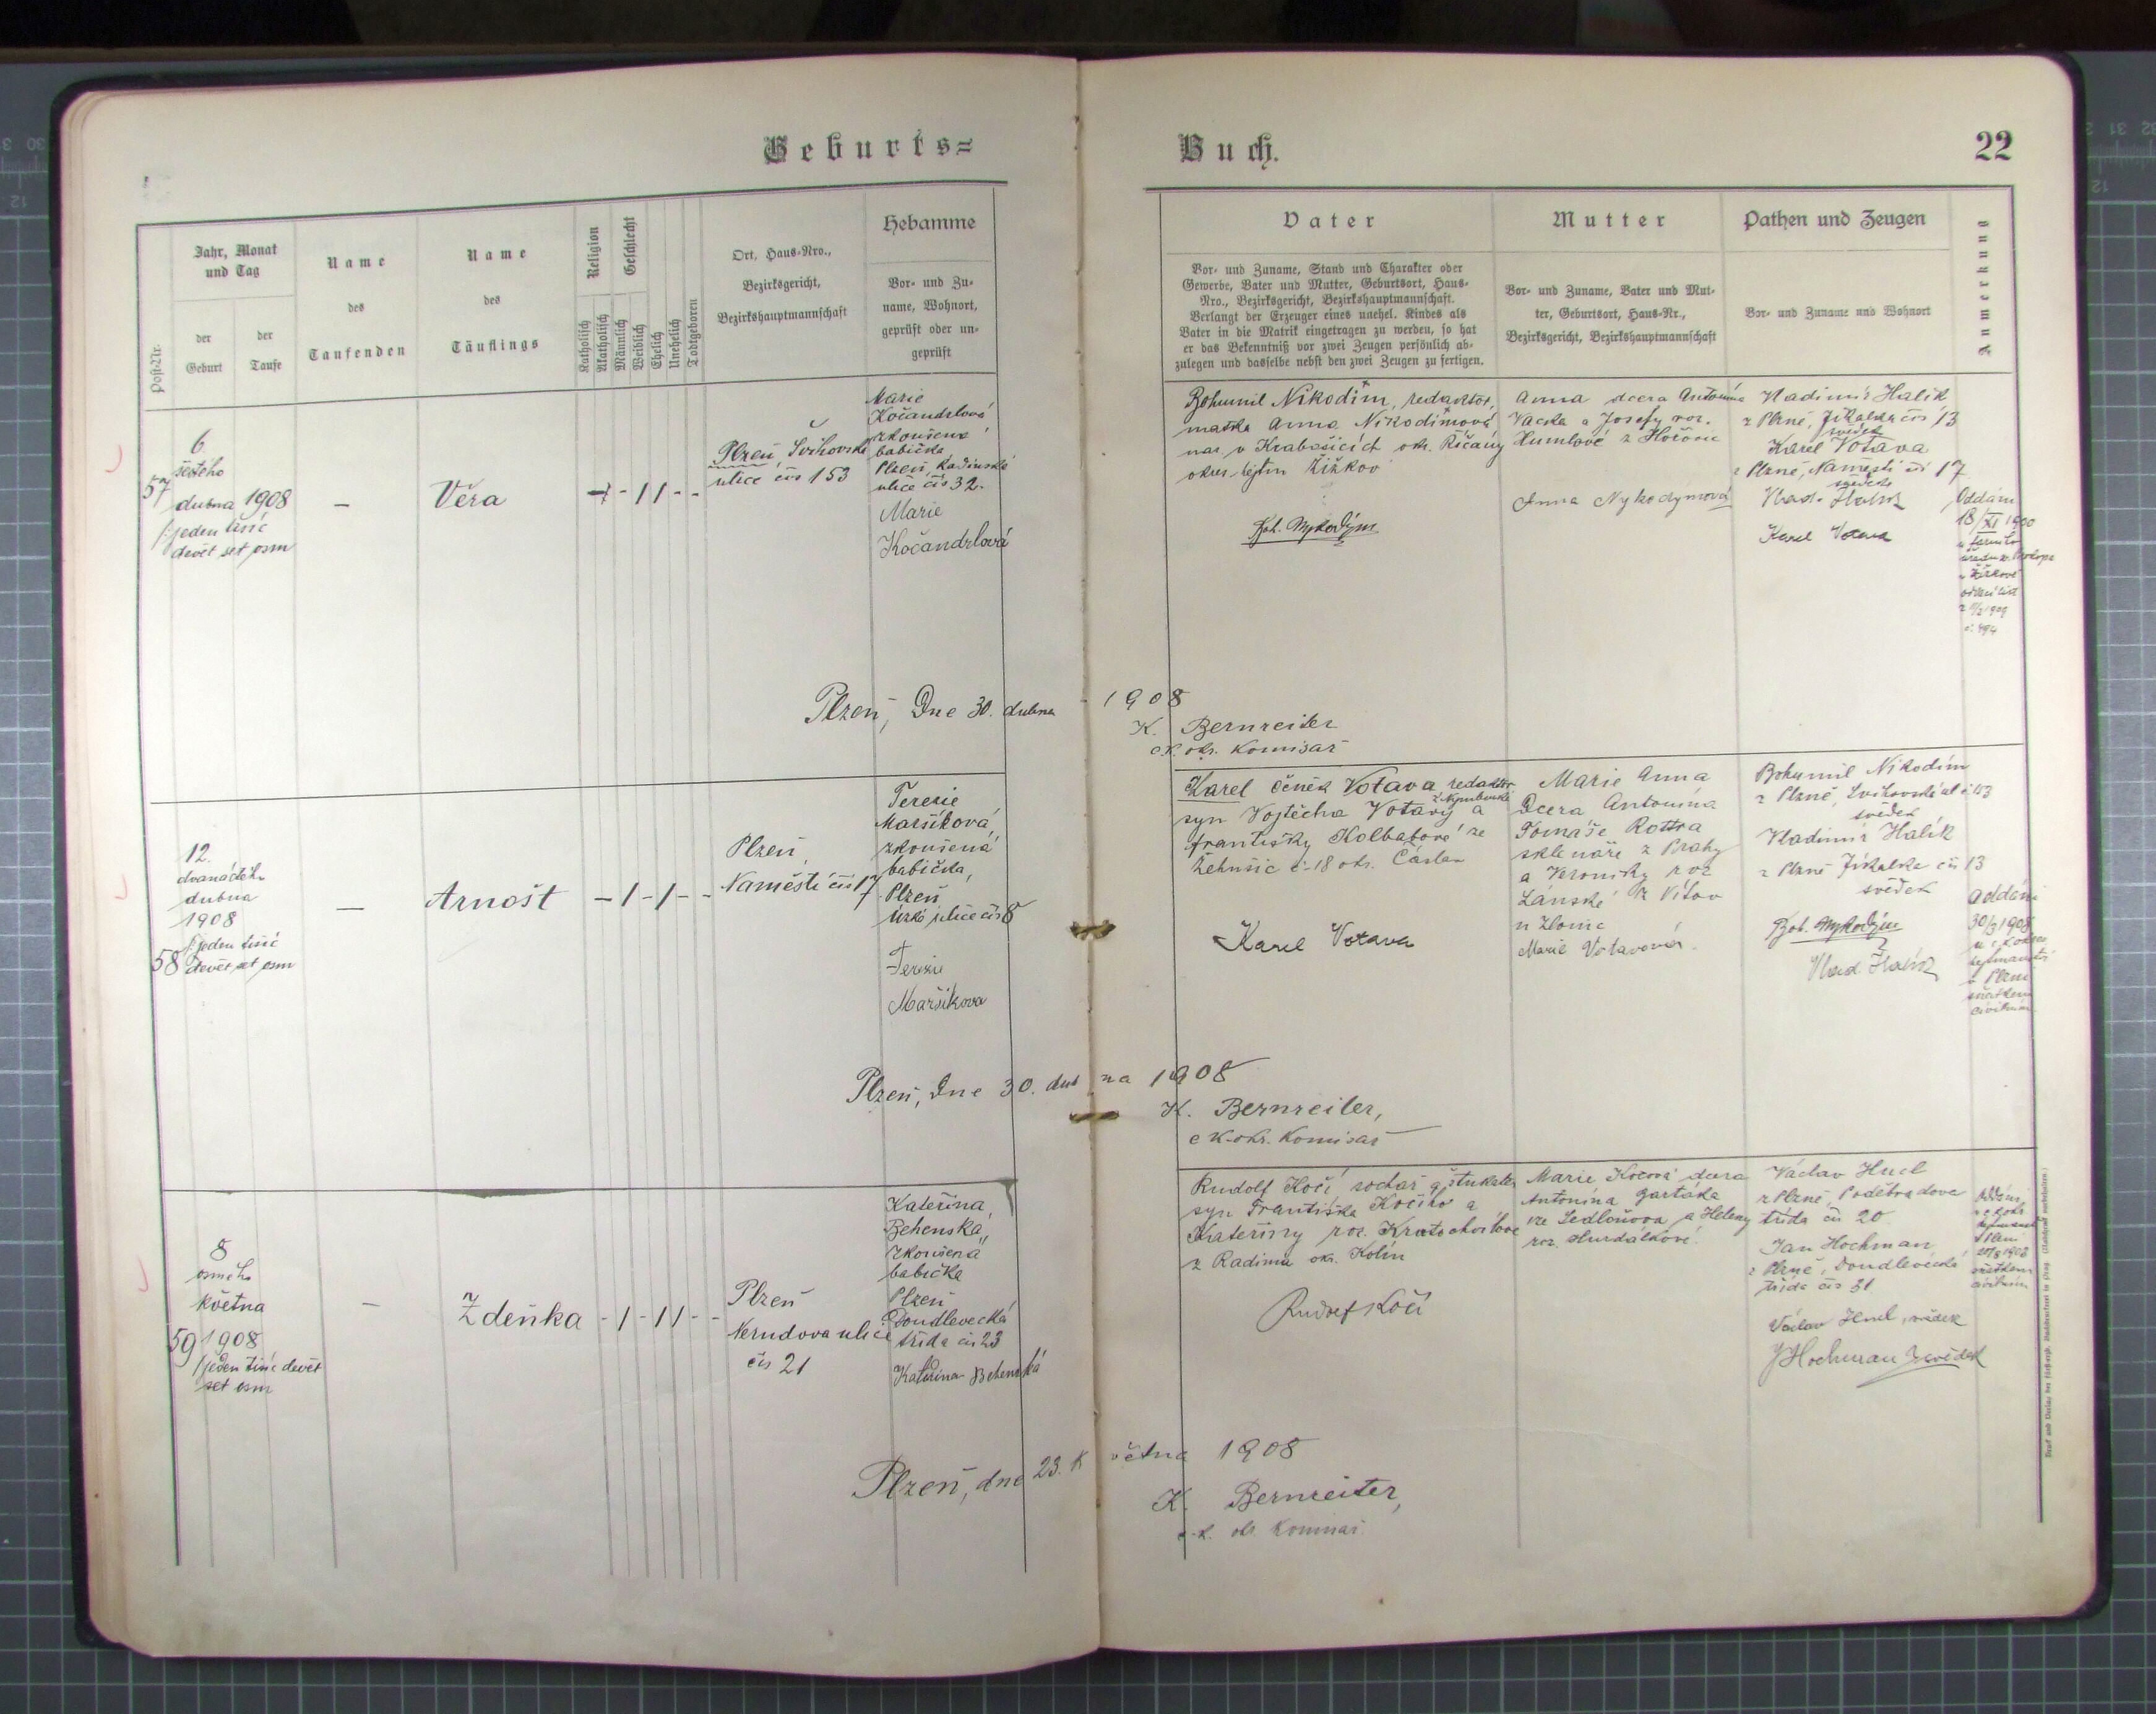 Geburts=
Buch.
22
Post-Nr.
Jahr, Monat
und Tag
der
Geburt
der
Taufe
Name
des
Taufenden
Name
des
Täuflings
Religion
Katholisch
Akatholisch
Geschlecht
Männlich
Weiblich
Ehelich
Unehelich
Todtgeboren
Ort, Haus-Nro.,
Bezirksgericht,
Bezirkshauptmannschaft
Hebamme
Vor- und Zu-
name, Wohnort,
geprüft oder un-
geprüft
Vater
Vor- und Zuname, Stand und Charakter oder
Gewerbe, Vater und Mutter, Geburtsort, Haus-
Nro., Bezirksgericht, Bezirkshauptmannschaft.
Verlangt der Erzeuger eines unehel. Kindes als
Vater in die Matrik eingetragen zu werden, so hat
er das Bekenntniß vor zwei Zeugen persönlich ab-
zulegen und dasselbe nebst den zwei Zeugen zu fertigen.
Mutter
Vor- und Zuname, Vater und Mut-
ter, Geburtsort, Haus-Nr.,
Bezirksgericht, Bezirkshauptmannschaft
Pathen und Zeugen
Vor- und Zuname und Wohnort
Anmerkung
57
6.
šestého
dubna 1908
/:jeden tisíc
devět set osm
–
Věra
Plzeň, Švihovská
ulice čís 153
Marie
Kočandrlová
zkoušená
babička
Plzeň, Radinská
ulice čís 32.
Marie
Kočandrlová
Bohumil Nikodim, redaktor,
matka Anna Nikodimová
nar v Krabošicích okr. Říčany
okres. hejtm Žižkov
Boh. Nykodým
Anna dcera Antonína
Vacka a Josefy roz.
Humlové z Hořovic
Anna Nykodymová
Vladimír Halík
z Plzně, Jikalka čís 13
svědek
Karel Votava
z Plzně, Náměstí čís 17
svědek
Vlad. Halík
Karel Votava
Oddáni
18/XI 1900
u farního
úřadu sv. Prokopa
v Žižkově
oddací list
Plzeň, Dne 30. dubna 1908
K. Bernreiter
c.k. okr. komisař
58
12.
dvanáctého
dubna
1908
/:jeden tisíc
devět set osm
–
Arnošt
Plzeň,
Náměstí čís 17
Terezie
Maršíková,
zkoušená
babička,
Plzeň
Úzká ulice čís 8
Terezie
Maršíkova
Karel Čeněk Votava redaktor
syn Vojtěcha Votavy a
Františky Kolbabové ze
Žehušic č. 18 okr. Čáslav
Karel Votava
Marie Anna
Dcera Antonína
Tomáše Rottra
sklenáře z Prahy
a Veroniky roz
Lánské z Vítov
u Zlonic
Marie Votavová.
Bohumil Nikodim
z Plzně, Švihovská ul č 153
svědek
Vladimír Halík
z Plzně Jikalka čís 13
svědek
Boh. Nykodým
Vlad. Halík
oddáni
30/3 1908
u c.k. okres
hejtmanství
v Plzni
sňatkem
civilním
Plzeň, Dne 30. dubna 1908
K. Bernreiter,
c k. okr. komisař
59
8
osmého
května
1908
/:jeden tisíc devět
set osm
–
Zdeňka
Plzeň
Nerudova ulice
čís 21
Kateřina
Behenská,
zkoušená
babička
Plzeň
Doudlevecká
třída čís 23
Kateřina Behenská
Rudolf Kočí sochař a štukatér
syn Františka Kočího a
Kateřiny roz. Kratochvílové
z Radimi okr. Kolín
Rudolf Kočí
Marie Kočová dcera
Antonína Gartáka
ze Sedloňova a Heleny
roz. Hurdálkové
Václav Hucl
z Plzně, Poděbradova
třída čís 20
Jan Hochman
z Plzně, Doudlevecká
třída čís 31
Václav Hucl, svědek
J Hochman svědek
Oddáni
u c k okr
hejtmanství
v Plzni
sňatkem
civilním
Plzeň, dne 23. května 1908
K. Bernreiter,
c.k. okr komisař.